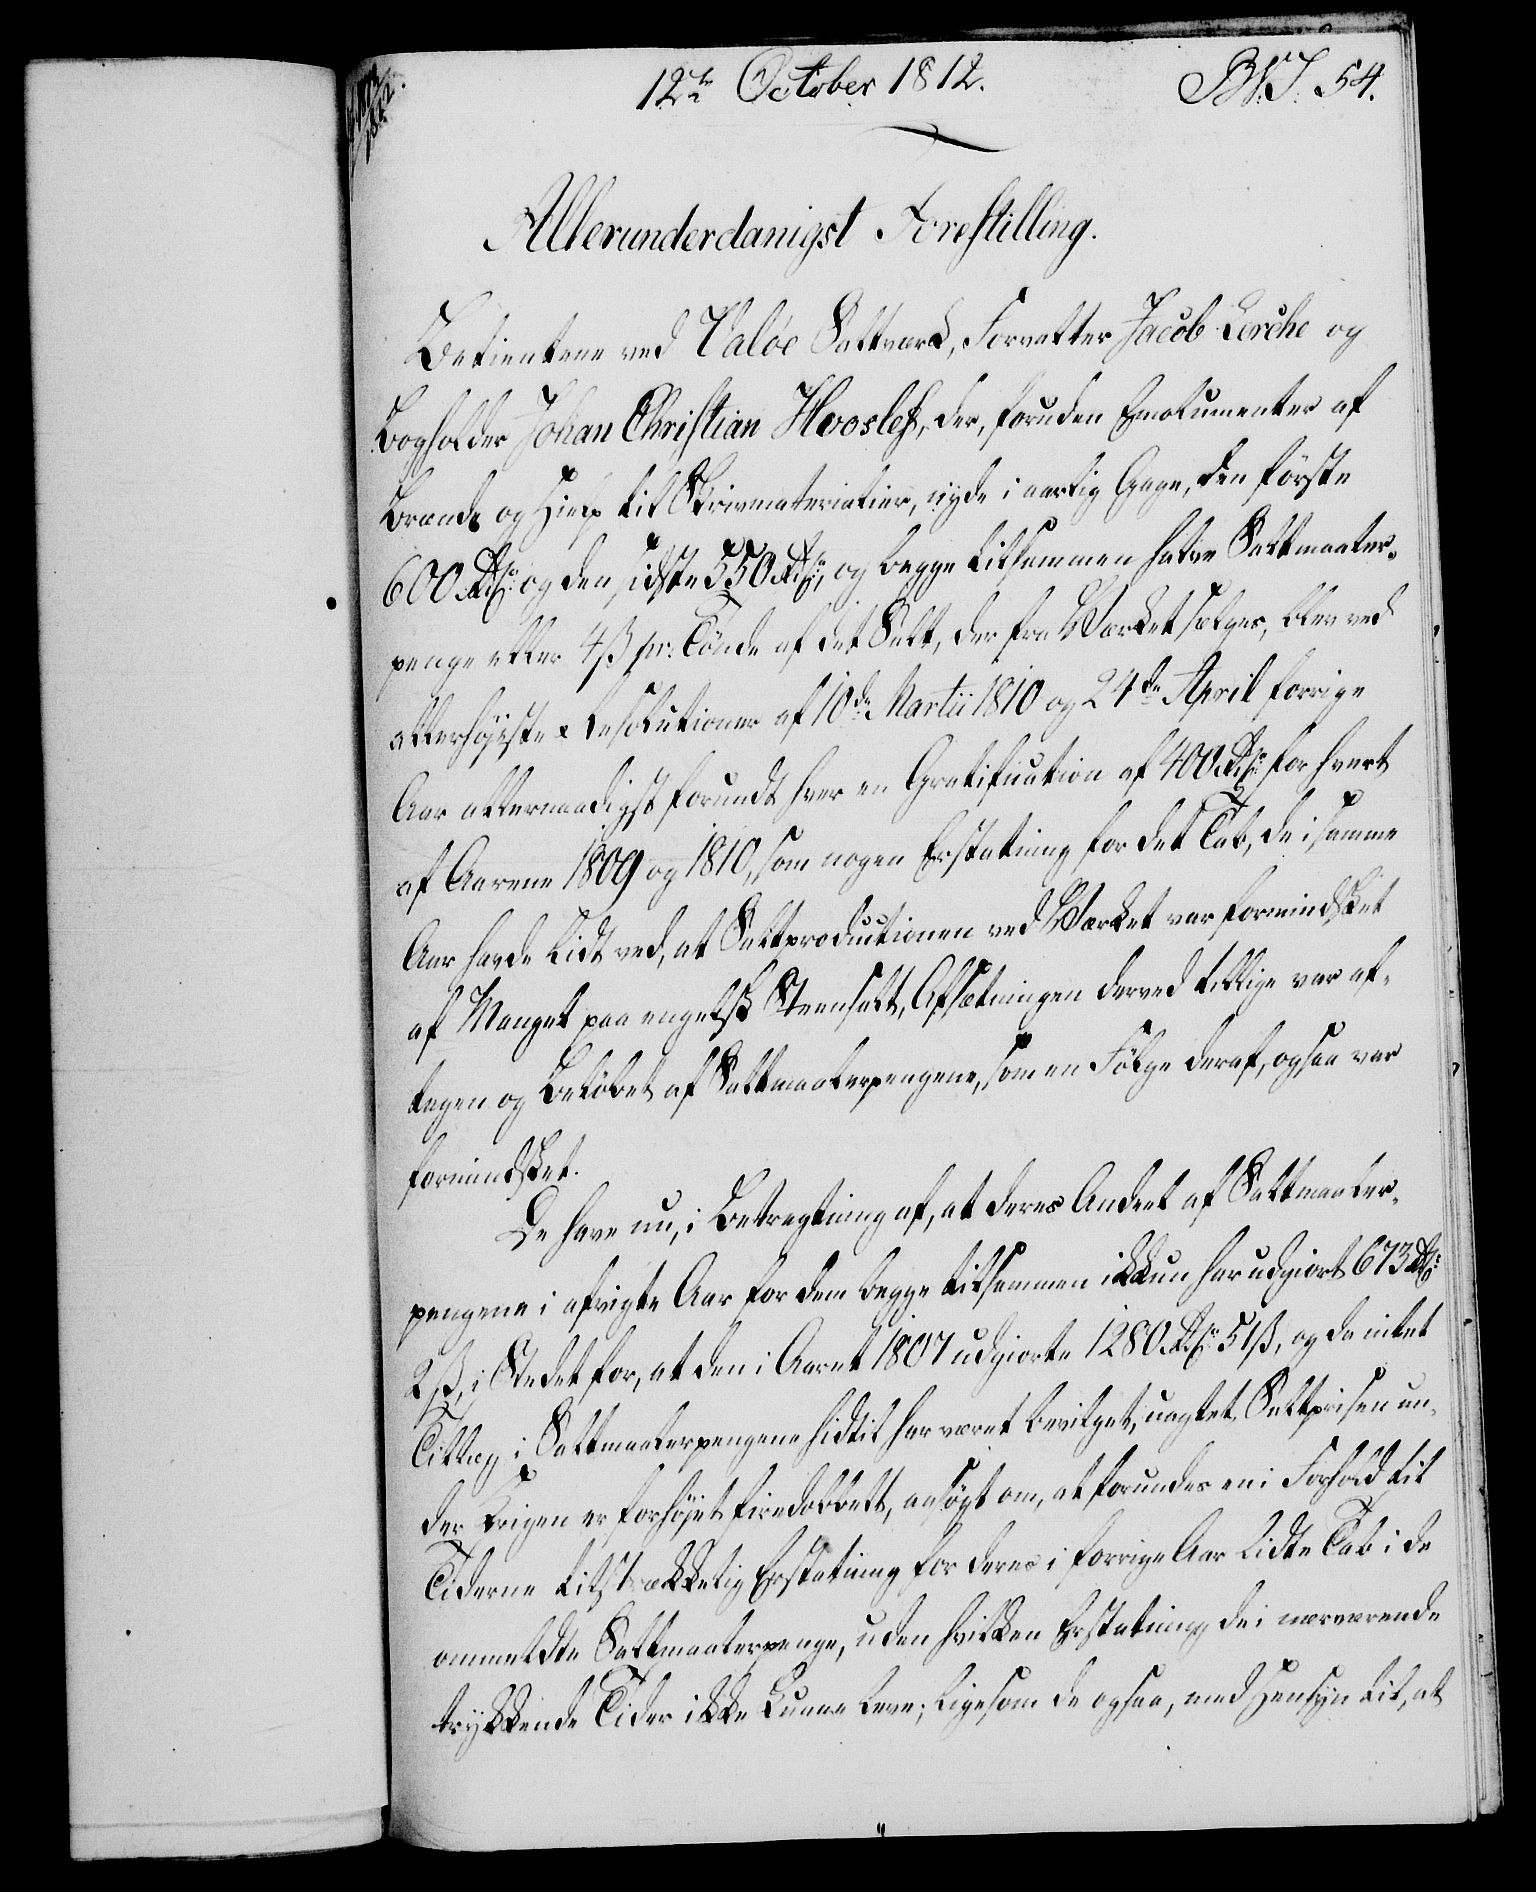 12te October 1812.
B.W.J. 54.
Allerunderdanigst Forestilling.
Betientene ved Valøe Saltværk, Forvalter Jacob Lerche og
Bogholder Johan Christian Hvoslef, der, foruden Emolumenter af
Brænde og Hielp til Skrivmaterialier, nyde i aarlig Gage, den første
600 Rdlr. og den sidste 550 Rdlr., og begge tilsammen halve Saltmaaler-
penge eller 4 ß pr: Tønde af det Salt, der fra Værket sælges, blev ved
allerhøieste Resolutioner af 10de Martii 1810 og 24de April forrige
Aar allernaadigst forundt hver en Gratification af 400 Rdlr. for hvert
af Aarene 1809 og 1810, som nogen Erstatning for det Tab, de i samme
Aar havde lidt ved, at Saltproductionen ved Værket var formindsket
af Mangel paa engelsk Steensalt, Afsætningen derved tillige var af-
tagen og Beløbet af Saltmaalerpengene, som en Følge deraf, ogsaa var
formindsket.
De have nu, i Betragtning af, at deres Andeel af Saltmaaler-
pengene i afvigte Aar for dem begge tilsammen ikkun har udgiort 673 Rdlr.
2 ß, i Stedet for, at den i Aaret 1807 udgiorte 1280 Rdlr. 51 ß, og da intet
Tillæg i Saltmaalerpengene hidtil har været bevilget, uagtet Saltprisen un-
der Krigen er forhøjet firedobbelt, ansøgt om, at forundes en i Forhold til
Tiderne tilstrækkelig Erstatning for deres i forrige Aar lidte Tab i de
ommeldte Saltmaalerpenge, uden hvilken Erstatning de i nærværende
trykkende Tider ikke kunne leve; ligesom de ogsaa, med Hensyn til, at